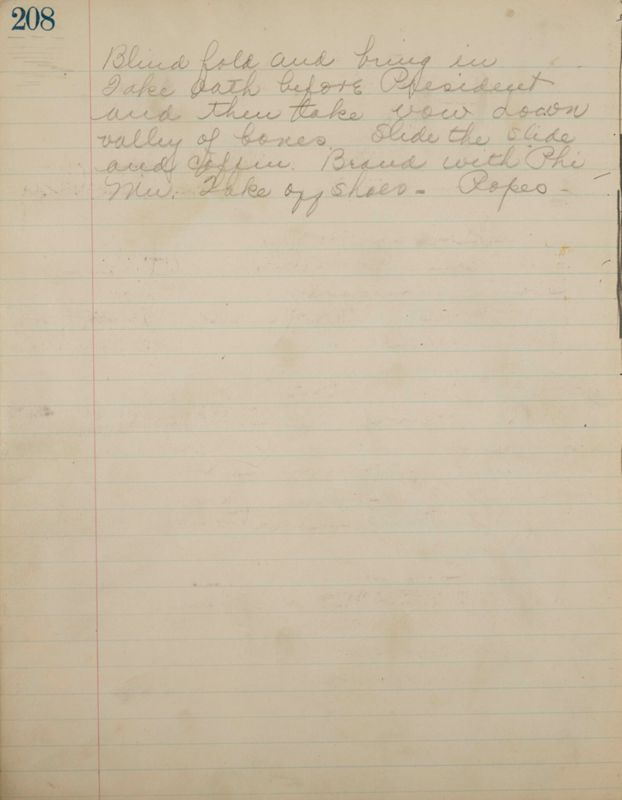 208
Blind fold and bring in
Take Oath before President
and then take vow down
valley of bones. Slide the Slide
and Coffin. Brand with Phi
Mu. Take off shoes - Ropes -